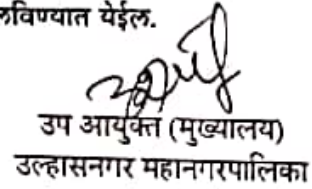 येईल.
उप आयुक्त (मुख्यालय)
उल्हासनगर महानगरपालिका